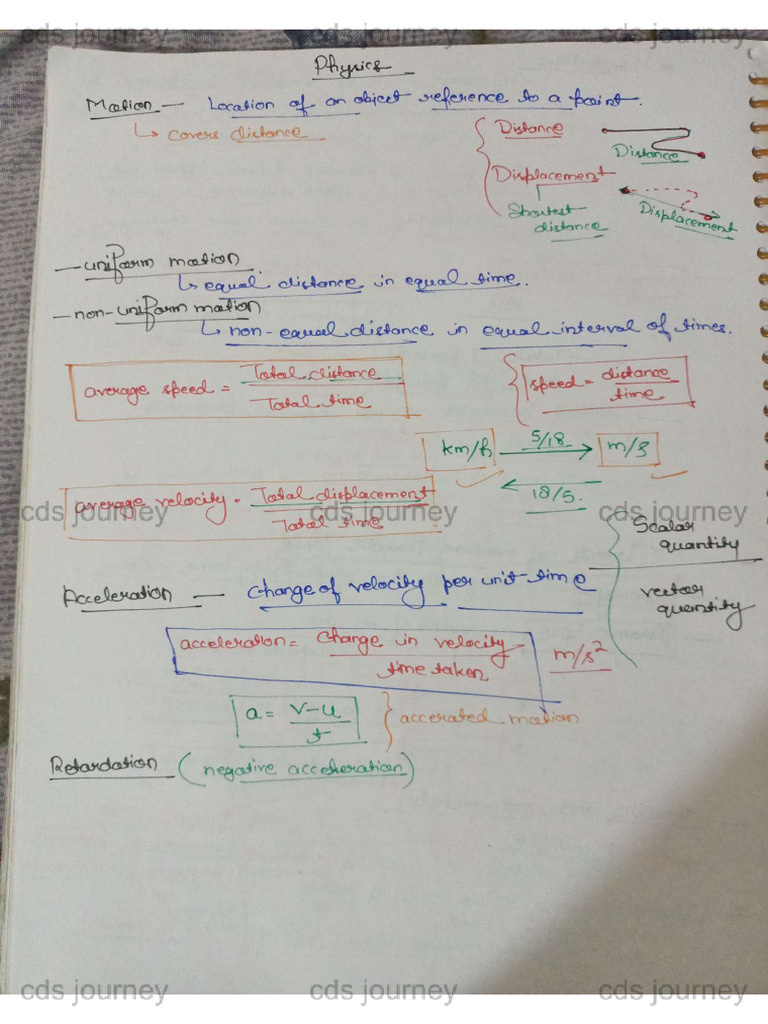 cds journey cds journey cds journey
Physics
Motion — Location of an object reference to a point.
↳ covers distance
Distance
Distance
Displacement
Shortest distance
Displacement
— uniform motion
↳ equal distance in equal time.
— non-uniform motion
↳ non-equal distance in equal interval of times.
average speed = Total distance / Total time
speed = distance / time
km/h 5/18 → m/s
← 18/5.
average velocity = Total displacement / Total time
cds journey cds journey cds journey
Scalar quantity
vector quantity
Acceleration — Change of velocity per unit time
acceleration = Change in velocity / time taken
m/s²
a = v-u / t
accerated motion
Retardation (negative acceleration)
cds journey cds journey cds journey